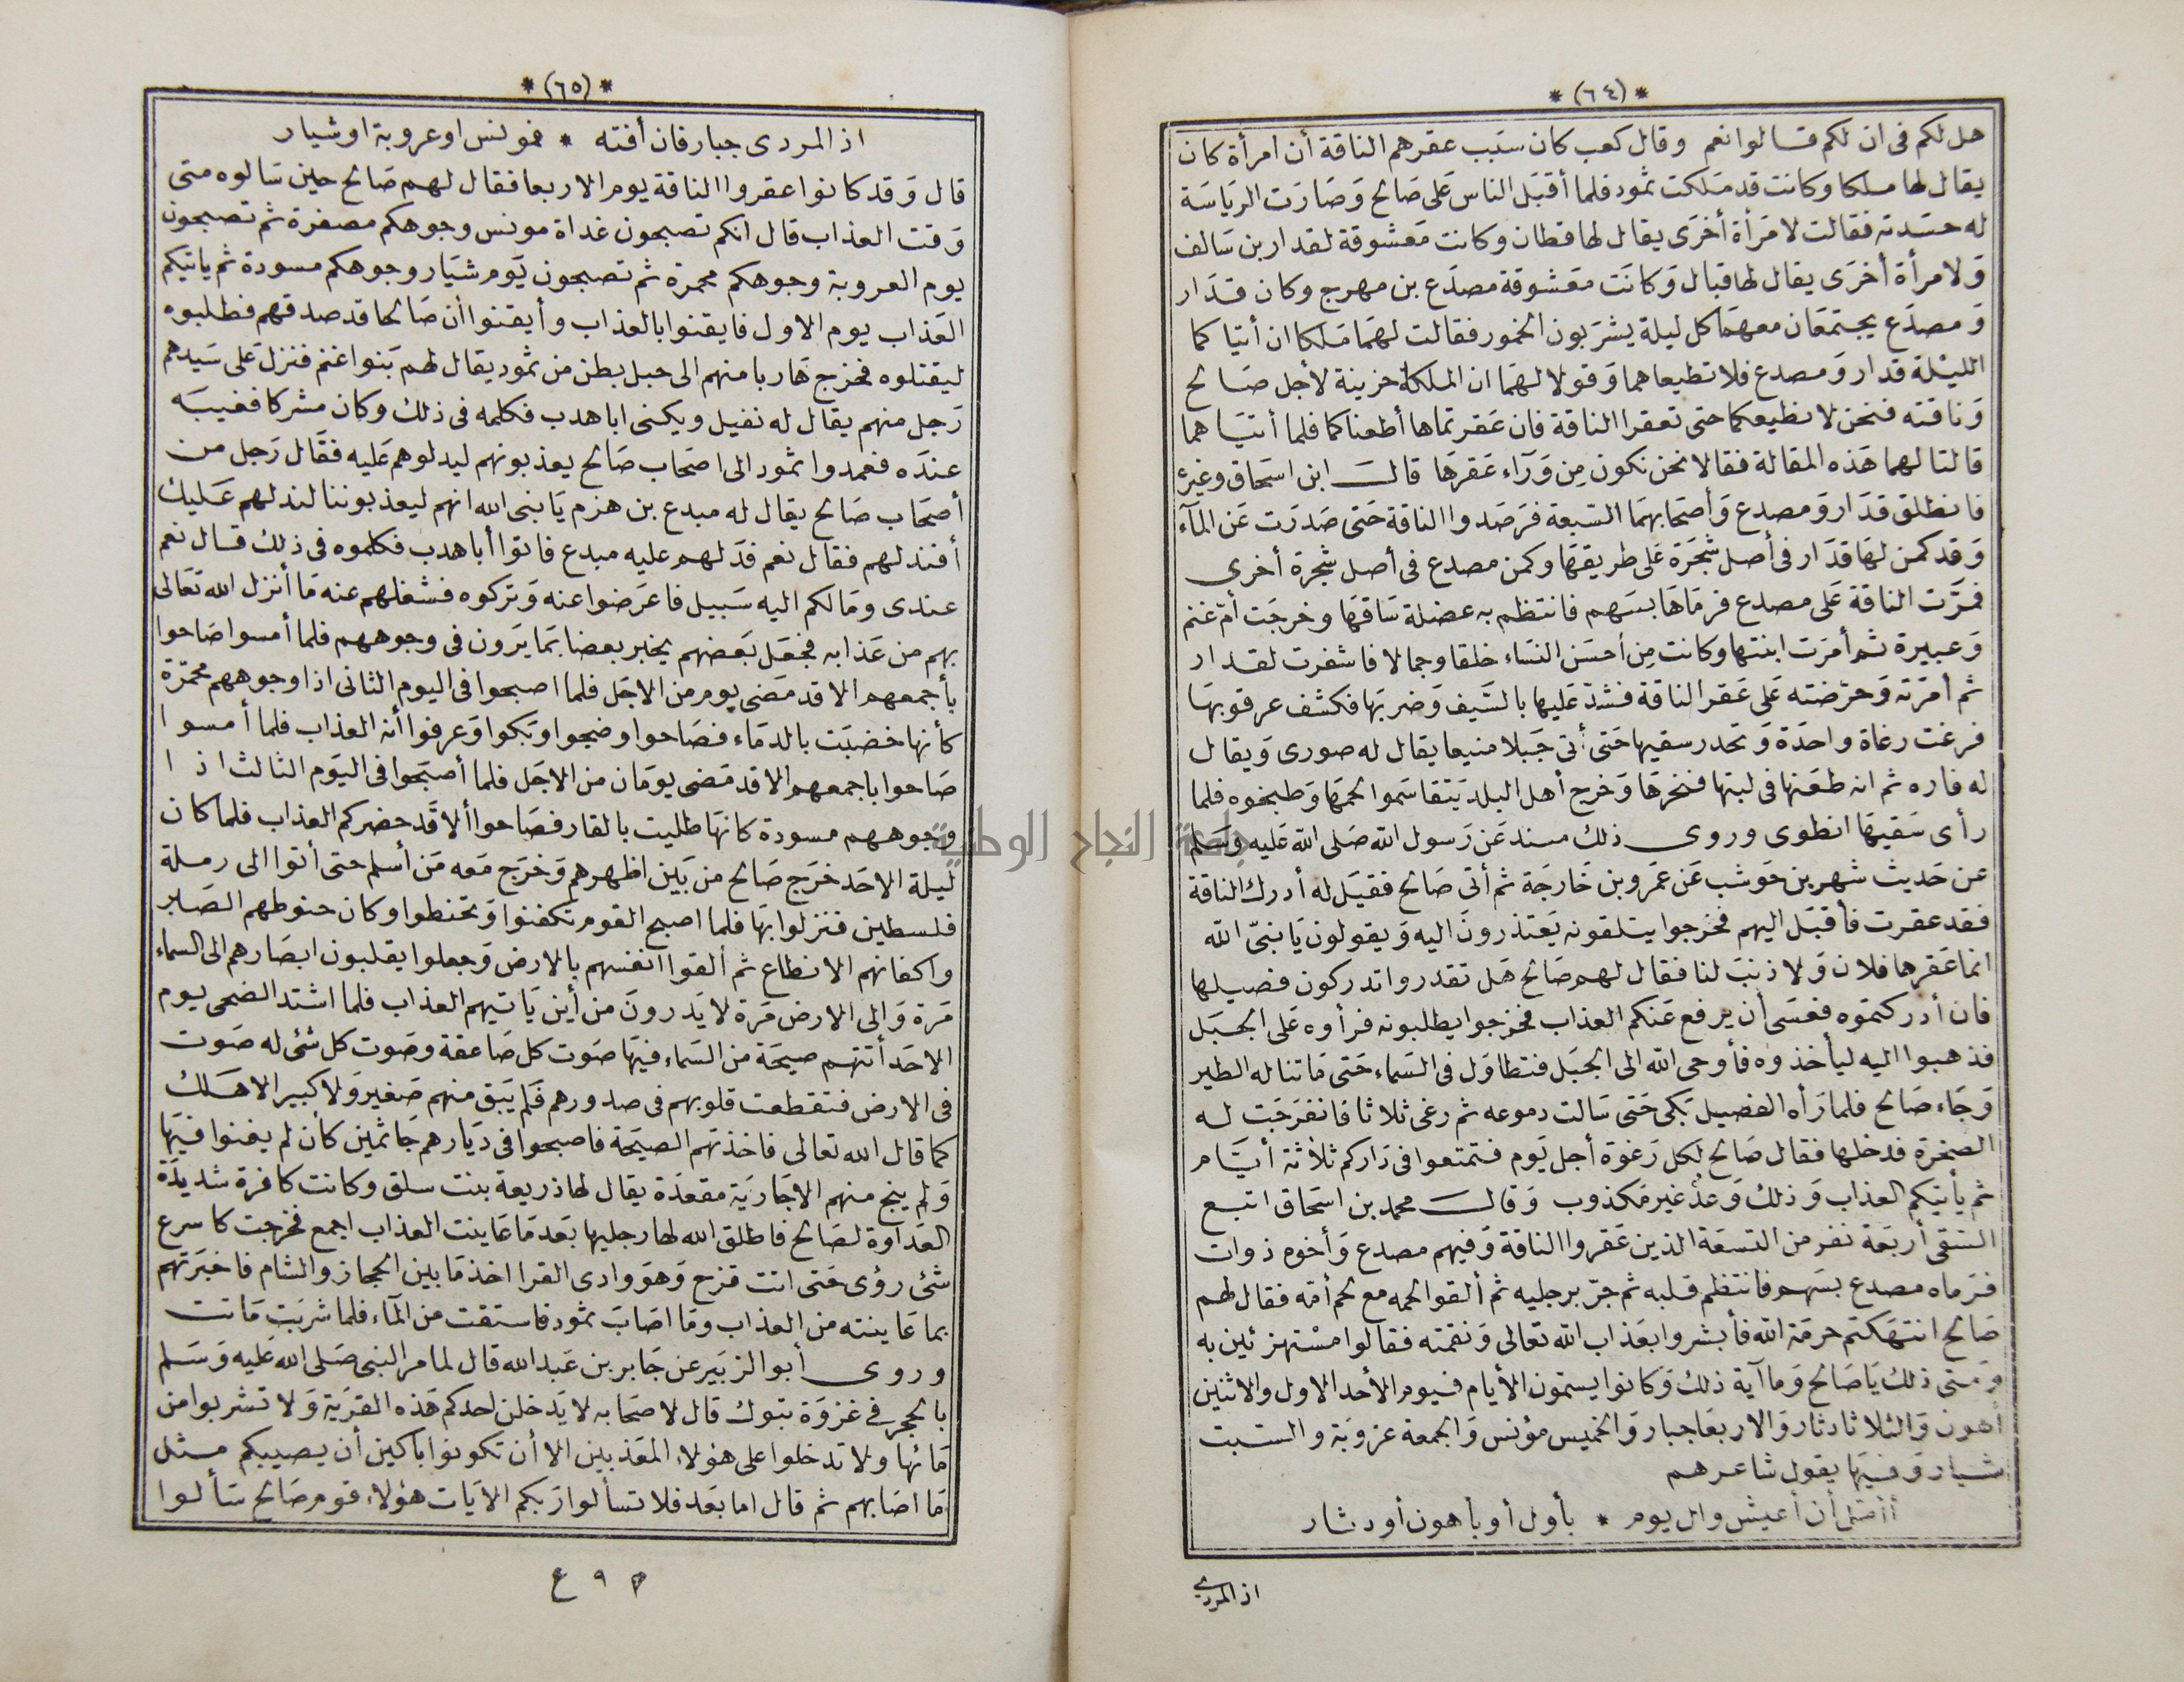 * (٦٤) *
هل لكم فى ان لكم قالوا نعم وقال كعب كان سبب عقرهم الناقة أن امرأة كان
يقال لها ملكا وكانت قد ملكت ثمود فلما أقبل الناس على صالح وصارت الرياسة
له حسدته فقالت لامرأة أخرى يقال لها قطان وكانت معشوقة لقدار بن سالف
ولامرأة أخرى يقال لها قبال وكانت معشوقة مصدع بن مهرج وكان قدار
ومصدع يجتمعان معهما كل ليلة يشربون الخمور فقالت لهما ملكا ان أتياكما
الليلة قدار ومصدع فلا تطيعاهما وقولا لهما ان الملكة حزينة لأجل صالح
وناقته فنحن لا نطيعكما حتى تعقرا الناقة فان عقرتماها أطعناكما فلما أتياهما
قالتا لهما هذه المقالة فقالا نحن نكون من ورآء عقرها قالــ ابن اسحاق وغيره
فانطلق قدار ومصدع وأصحابهما السبعة فرصدوا الناقة حتى صدرت عن المآء
وقد كمن لها قدار فى أصل شجرة على طريقها وكمن مصدع فى أصل شجرة أخرى
فمرّت الناقة على مصدع فرماها بسهم فانتظم به عضلة ساقها وخرجت أمّ غنم
وعبيرة ثم أمرت ابنتها وكانت من أحسن النساء خلقا وجمالا فاسفرت لقدار
ثم أمرته وحرّضته على عقر الناقة فشدّ عليها بالسّيف وضربها فكشف عرقوبها
فرغت رغاة واحدة وتحدر سقيها حتى أتى جبلا منيعا يقال له صورى ويقال
له فاره ثم انه طعنها فى لبتها فنحرها وخرج أهل البلد يتقاسموا لحمها وطبخوه فلما
رأى سقيها انطوى وروى ذلك مسند عن رسول الله صلى الله عليه وسلم
عن حديث شهر بن حوشب عن عمرو بن خارجة ثم أتى صالح فقيل له أدرك الناقة
فقد عقرت فأقبل اليهم فخرجوا يتلقونه يعتذرون اليه ويقولون يا نبىّ الله
انما عقرها فلان ولا ذنب لنا فقال لهم صالح هل تقدروا تدركون فصيلها
فان أدركتموه فعسى أن يرفع عنكم العذاب فخرجوا يطلبونه فرأوه على الجبل
فذهبوا اليه ليأخذوه فأوحى الله الى الجبل فتطاول فى السماء حتى ما تناله الطير
وجاء صالح فلما رأه الفصيل بكى حتى سالت دموعه ثم رغى ثلاثا فانفرجت له
الصخرة فدخلها فقال صالح لكل رغوة أجل يوم فتمتعوا فى داركم ثلاثة أيام
ثم يأتيكم العذاب وذلك وعد غير مكذوب وقالــ محمد بن اسحاق اتبع
السقى أربعة نفر من التسعة الذين عقروا الناقة وفيهم مصدع وأخوه ذوات
فرماه مصدع بسهم فانتظم قلبه ثم جرّ برجليه ثم ألقوا لحمه مع لحم أمّه فقال لهم
صالح انتهكتم حرمة الله فأبشروا بعذاب الله تعالى ونقمته فقالوا مستهزئين به
ومتى ذلك يا صالح وما آية ذلك وكانوا يسمّون الأيام فيوم الأحد الاول والاثنين
أهون والثلاثا دثار والاربعا جبار والخميس مؤنس والجمعة عزوبة والسبت
شيار وفيها يقول شاعرهم
أأصلى أن أعيش وال يوم * بأول أو بأهون أو دثار
اذ المردى
* (٦٥) *
اذ المردى جبار فان أفته * فمونس او عروبة او شيار
قال وقد كانوا عقروا الناقة يوم الاربعا فقال لهم صالح حين سالوه متى
وقت العذاب قال انكم تصبحون غداة مونس وجوهكم مصفرة ثم تصبحون
يوم العروبة وجوهكم محمرة ثم تصبحون يوم شيار وجوهكم مسودة ثم ياتيكم
العذاب يوم الاول فايقنوا بالعذاب وأيقنوا أن صالحا قد صدقهم فطلبوه
ليقتلوه فخرج هاربا منهم الى حبل بطن من ثمود يقال لهم بنوا غنم فنزل على سيدهم
رجل منهم يقال له نفيل ويكنى ابا هدب فكلمه فى ذلك وكان مشركا فغيبه
عنده فعمدوا ثمود الى اصحاب صالح يعذبونهم ليدلوهم عليه فقال رجل من
أصحاب صالح يقال له مبدع بن هزم يا بنى الله انهم ليعذبوننا لندلهم عليك
أفندلهم فقال نعم فدلهم عليه مبدع فاتوا أبا هدب فكلموه فى ذلك قال نعم
عندى ومالكم اليه سبيل فاعرضوا عنه وتركوه فشغلهم عنه ما أنزل الله تعالى
بهم من عذابه فجعل بعضهم يخبر بعضا بما يرون فى وجوههم فلما أمسوا صاحوا
بأجمعهم الا قد مضى يوم من الاجل فلما اصبحوا فى اليوم الثانى اذا وجوههم محمّرة
كأنها خضبت بالدماء فصاحوا وضجوا وبكوا وعرفوا أنه العذاب فلما أمسوا
صاحوا باجمعهم الا قد مضى يومان من الاجل فلما أصبحوا فى اليوم الثالث اذا
وجوههم مسودة كانها طليت بالقار فصاحوا ألا قد حضركم العذاب فلما كان
ليلة الاحد خرج صالح من بين اظهرهم وخرج معه من أسلم حتى أتوا الى رملة
فلسطين فنزلوا بها فلما اصبح القوم تكفنوا وتحنطوا وكان حنوطهم الصابر
واكفانهم الانطاع ثم ألقوا انفسهم بالارض وجعلوا يقلبون ابصارهم الى السماء
مرة والى الارض مرة لا يدرون من أين ياتيهم العذاب فلما اشتد الضحى يوم
الاحد أتتهم صيحة من السماء فيها صوت كل صاعقة وصوت كل شئ له صوت
فى الارض فتقطعت قلوبهم فى صدورهم فلم يبق منهم صغير ولا كبير الا هلك
كما قال الله تعالى فاخذتهم الصيحة فاصبحوا فى ديارهم جاثمين كأن لم يغنوا فيها
ولم ينج منهم الا جارية مقعدة يقال لها ذريعة بنت سلق وكانت كافرة شديدة
العداوة لصالح فاطلق الله لها رجليها بعد ما عاينت العذاب اجمع فخرجت كاسرع
شئ رؤى حتى اتت قزح وهو وادى القرا اخذ ما بين الحجاز والشام فاخبرتهم
بما عاينته من العذاب وما اصاب ثمود فاستقت من المآء فلما شربت ماتت
وروى أبو الزبير عن جابر بن عبد الله قال لما مر النبى صلى الله عليه وسلم
بالحجر فى غزوة تبوك قال لاصحابه لا يدخلن احدكم هذه القرية ولا تشربوا من
مائها ولا تدخلوا على هؤلاء المعذبين الا أن تكونوا باكين أن يصيبكم مثل
ما اصابهم ثم قال اما بعد فلا تسألوا ربكم الايات هؤلاء قوم صالح سألوا
٩ ع
جامعة النجاح الوطنية